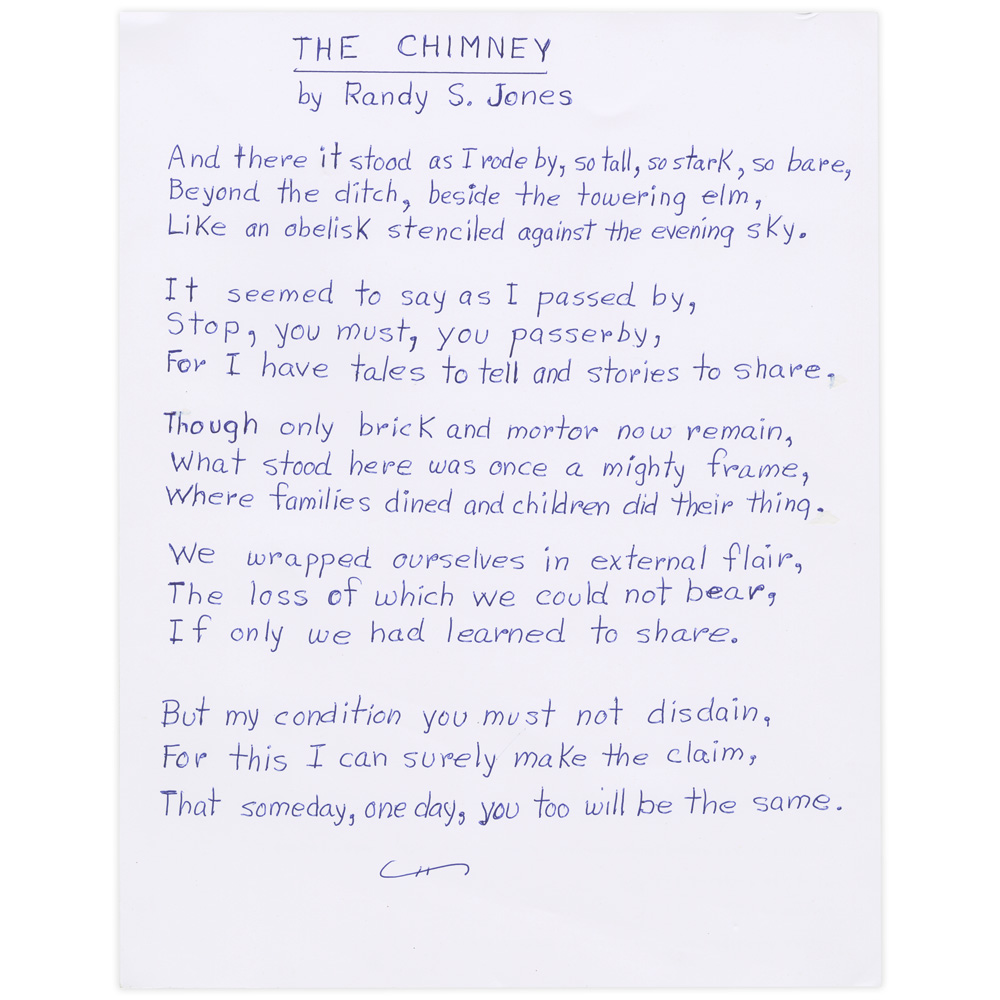 THE CHIMNEY
by Randy S. Jones
And there it stood as I rode by, so tall, so stark, so bare,
Beyond the ditch, beside the towering elm,
Like an obelisk stenciled against the evening sky.
It seemed to say as I passed by,
Stop, you must, you passerby,
For I have tales to tell and stories to share.
Though only brick and mortor now remain,
What stood here was once a mighty frame,
Where families dined and children did their thing.
We wrapped ourselves in external flair,
The loss of which we could not bear,
If only we had learned to share.
But my condition you must not disdain,
For this I can surely make the claim,
That someday, one day, you too will be the same.